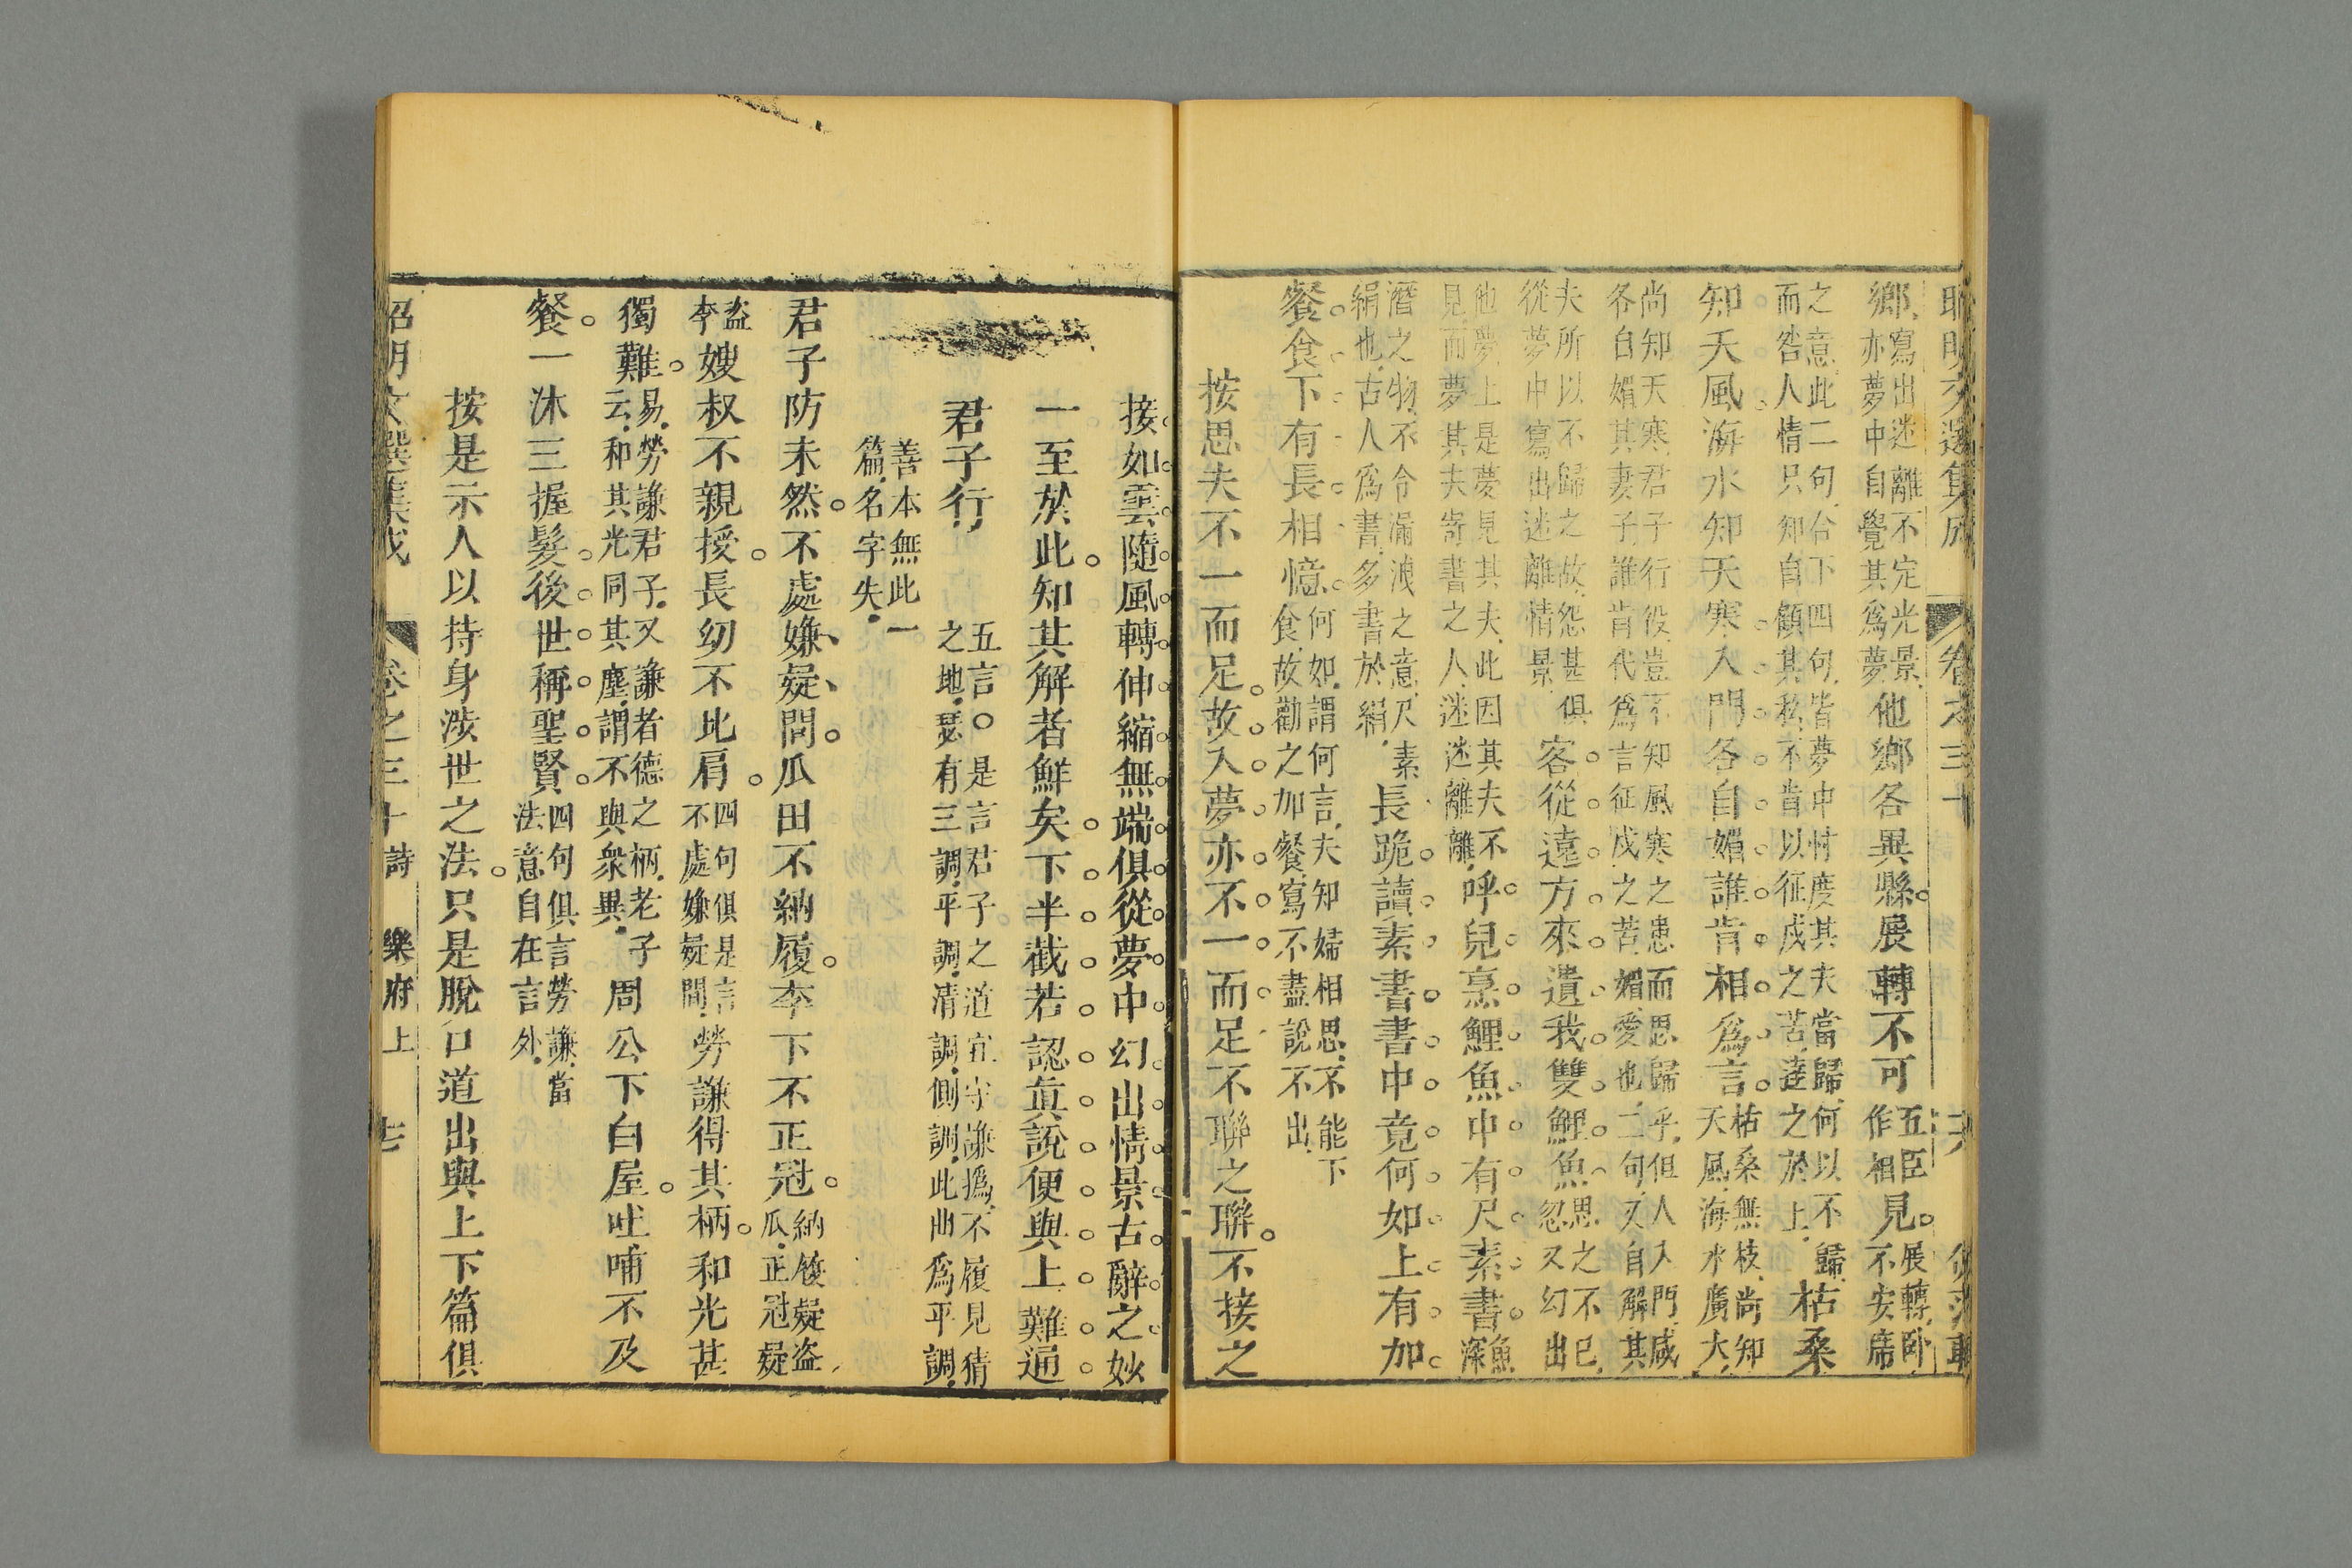 昭明文選集成 卷之三十 六
鄉寫出迷離不定光景亦夢中自覺其爲夢他鄉各異縣展轉不可五臣作相見展轉臥不安席
之意此二句合下四句皆夢中忖度其夫當歸何以不歸而咎人情只知自顧其私不肯以征戍之苦達之於上枯桑
知天風海水知天寒入門各自媚誰肯相爲言枯桑無枝尚知天風海水廣大
尚知天寒君子行役豈不知風寒之患而思歸乎但人入門咸各自媚其妻子誰肯代爲言征戍之苦媚愛也二句又自解其
夫所以不歸之故怨甚俱從夢中寫出迷離情景客從遠方來遺我雙鯉魚思之不已忽又幻出
他夢上是夢見其夫此因其夫不見而夢其夫寄書之人迷迷離離呼兒烹鯉魚中有尺素書魚深
潛之物不令漏洩之意尺素絹也古人爲書多書於絹長跪讀素書書中竟何如上有加
餐食下有長相憶何如謂何言夫知婦相思不能下食故勸之加餐寫不盡說不出
按思夫不一而足故入夢亦不一而足不聯之聯不接之
接如雲隨風轉伸縮無端俱從夢中幻出情景古辭之妙
一至於此知其解者鮮矣下半截若認眞說便與上難通
君子行五言○是言君子之道宜守謙撝不履見猜之地瑟有三調平調清調側調此曲爲平調
善本無此一篇名字失
君子防未然不處嫌疑間瓜田不納履李下不正冠納履疑盜瓜正冠疑
盜李嫂叔不親授長幼不比肩四句俱是言不處嫌疑間勞謙得其柄和光甚
獨難易勞謙君子又謙者德之柄老子云和其光同其塵謂不與衆異周公下白屋吐哺不及
餐一沐三握髮後世稱聖賢四句俱言勞謙當法意自在言外
按是示人以持身涉世之法只是脫口道出與上下篇俱
昭明文選集成 卷之三十詩 樂府上 七